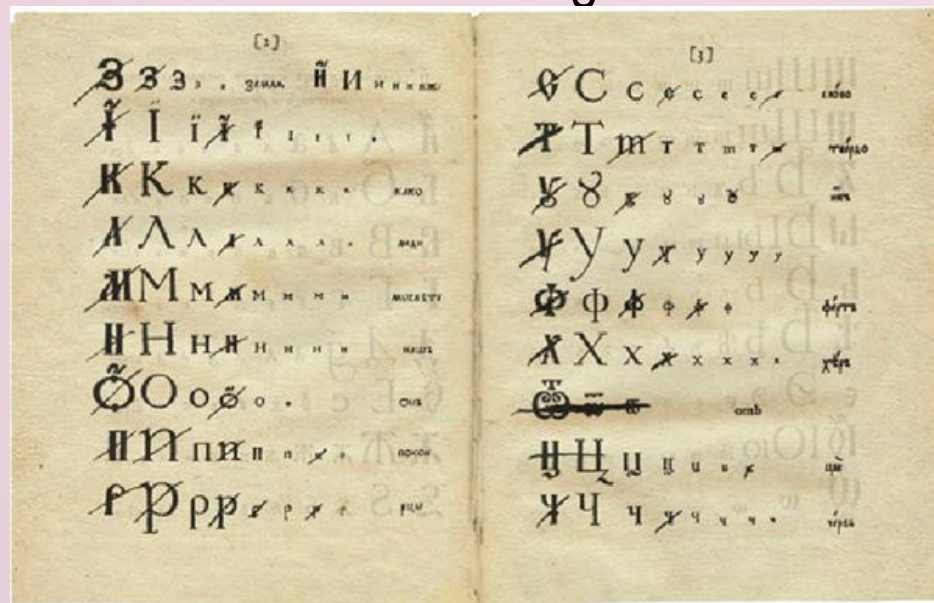 [2]
З З З з з . ЗЕМЛѦ. И̃ И и и и и ИЖЕ
Ї Ї ї ї ї ї ї ї .
К К к к к к к к КАКО
Л Л л л л л л л ЛЮДИ
М М м м м м м м МЫСЛѢТЕ
Н Н н н н н н н НАШЪ
О О о о о . ОНЪ
П П п п п п п п ПОКОЙ
Р Р р р р р р р РЦЫ
[3]
С С с с с с с СЛОВО
Т Т т т т т т ТВЕРДО
Ꙋ Ꙋ ꙋ ꙋ ꙋ ꙋ
У У у у у у у у
Ф ф ф ф ф ф ФЕРТЪ
Х Х х х х х х х ХѢРЪ
Ѿ ѿ ѿ отъ
Ц Ц ц ц ц ц ц ЦЫ
Ч Ч ч ч ч ч ч ч ЧЕРВЬ